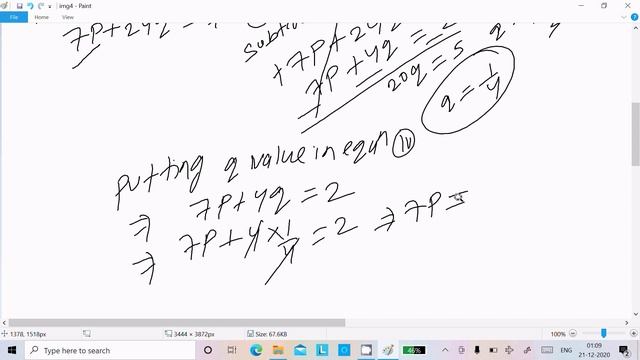 img4 - Paint
File Home View
7P + 24q =
subt
+7P + 24q =
7P + 4q = 2
20q = 5
q = 1/4
putting q value in eqan (iv)
⇒ 7P + 4q = 2
⇒ 7P + 4 × 1/4 = 2 ⇒ 7P =
1378, 1518px
3444 × 3872px
Size: 67.6KB
100%
Type here to search
46%
ENG
01:09
21-12-2020